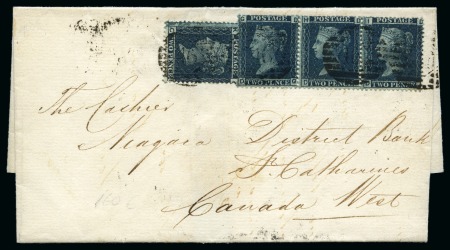 POSTAGE POSTAGE POSTAGE POSTAGE
TWO PENCE TWO PENCE TWO PENCE
The Cashier
Niagara District Bank
St. Catharines
Canada West